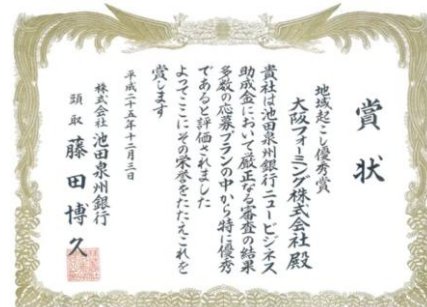 賞状
地域起こし優秀賞
大阪フォーミング株式会社殿
貴社は池田泉州銀行ニュービジネス
助成金において厳正なる審査の結果
多数の応募プランの中から特に優秀
であると評価されました
よってここにその栄誉をたたえこれを
賞します
平成二十五年十二月三日
株式会社 池田泉州銀行
頭取 藤田博久